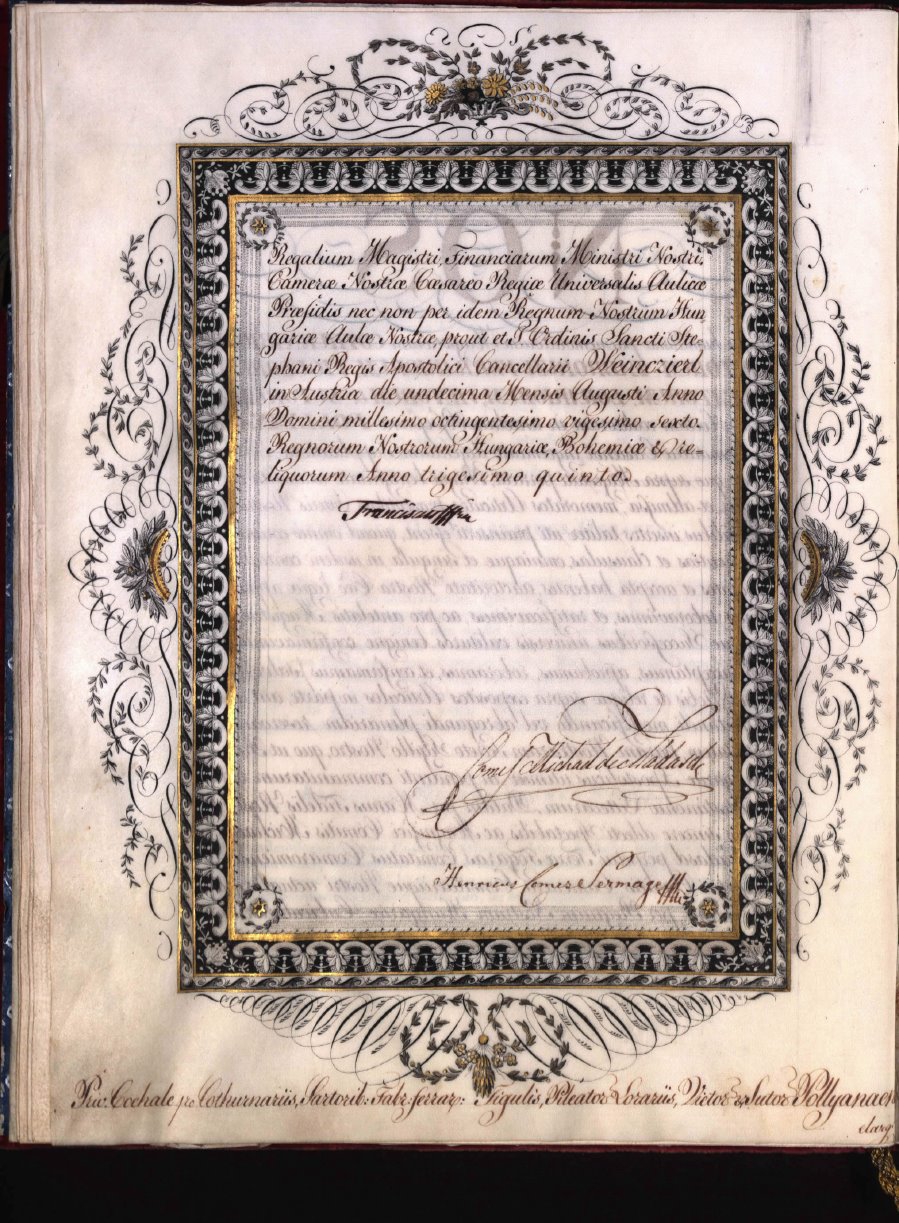 Regalium Magistri, Financiarum Ministri Nostri,
Cameræ Nostræ Cæsareo Regiæ Universalis Aulicæ
Præsidis nec non per idem Regnum Nostrum Hun-
gariæ Aulæ Nostræ, prout et I. Ordinis Sancti Ste-
phani Regis Apostolici Cancellarii Weinczierl
in Austria die undecima Mensis Augusti Anno
Domini millesimo octingentesimo vigesimo sexto.
Regnorum Nostrorum Hungariæ, Bohemiæ & re-
liquorum Anno trigesimo quinto.
Franciscus
Comes Michael de Nádasd
Henricus Comes
Priv. Cochale pro Cothurnariis, Sartorib: Fabr. ferrar: Figulis, Pileator Lorariis, Victor & Sutor Pollyanaen